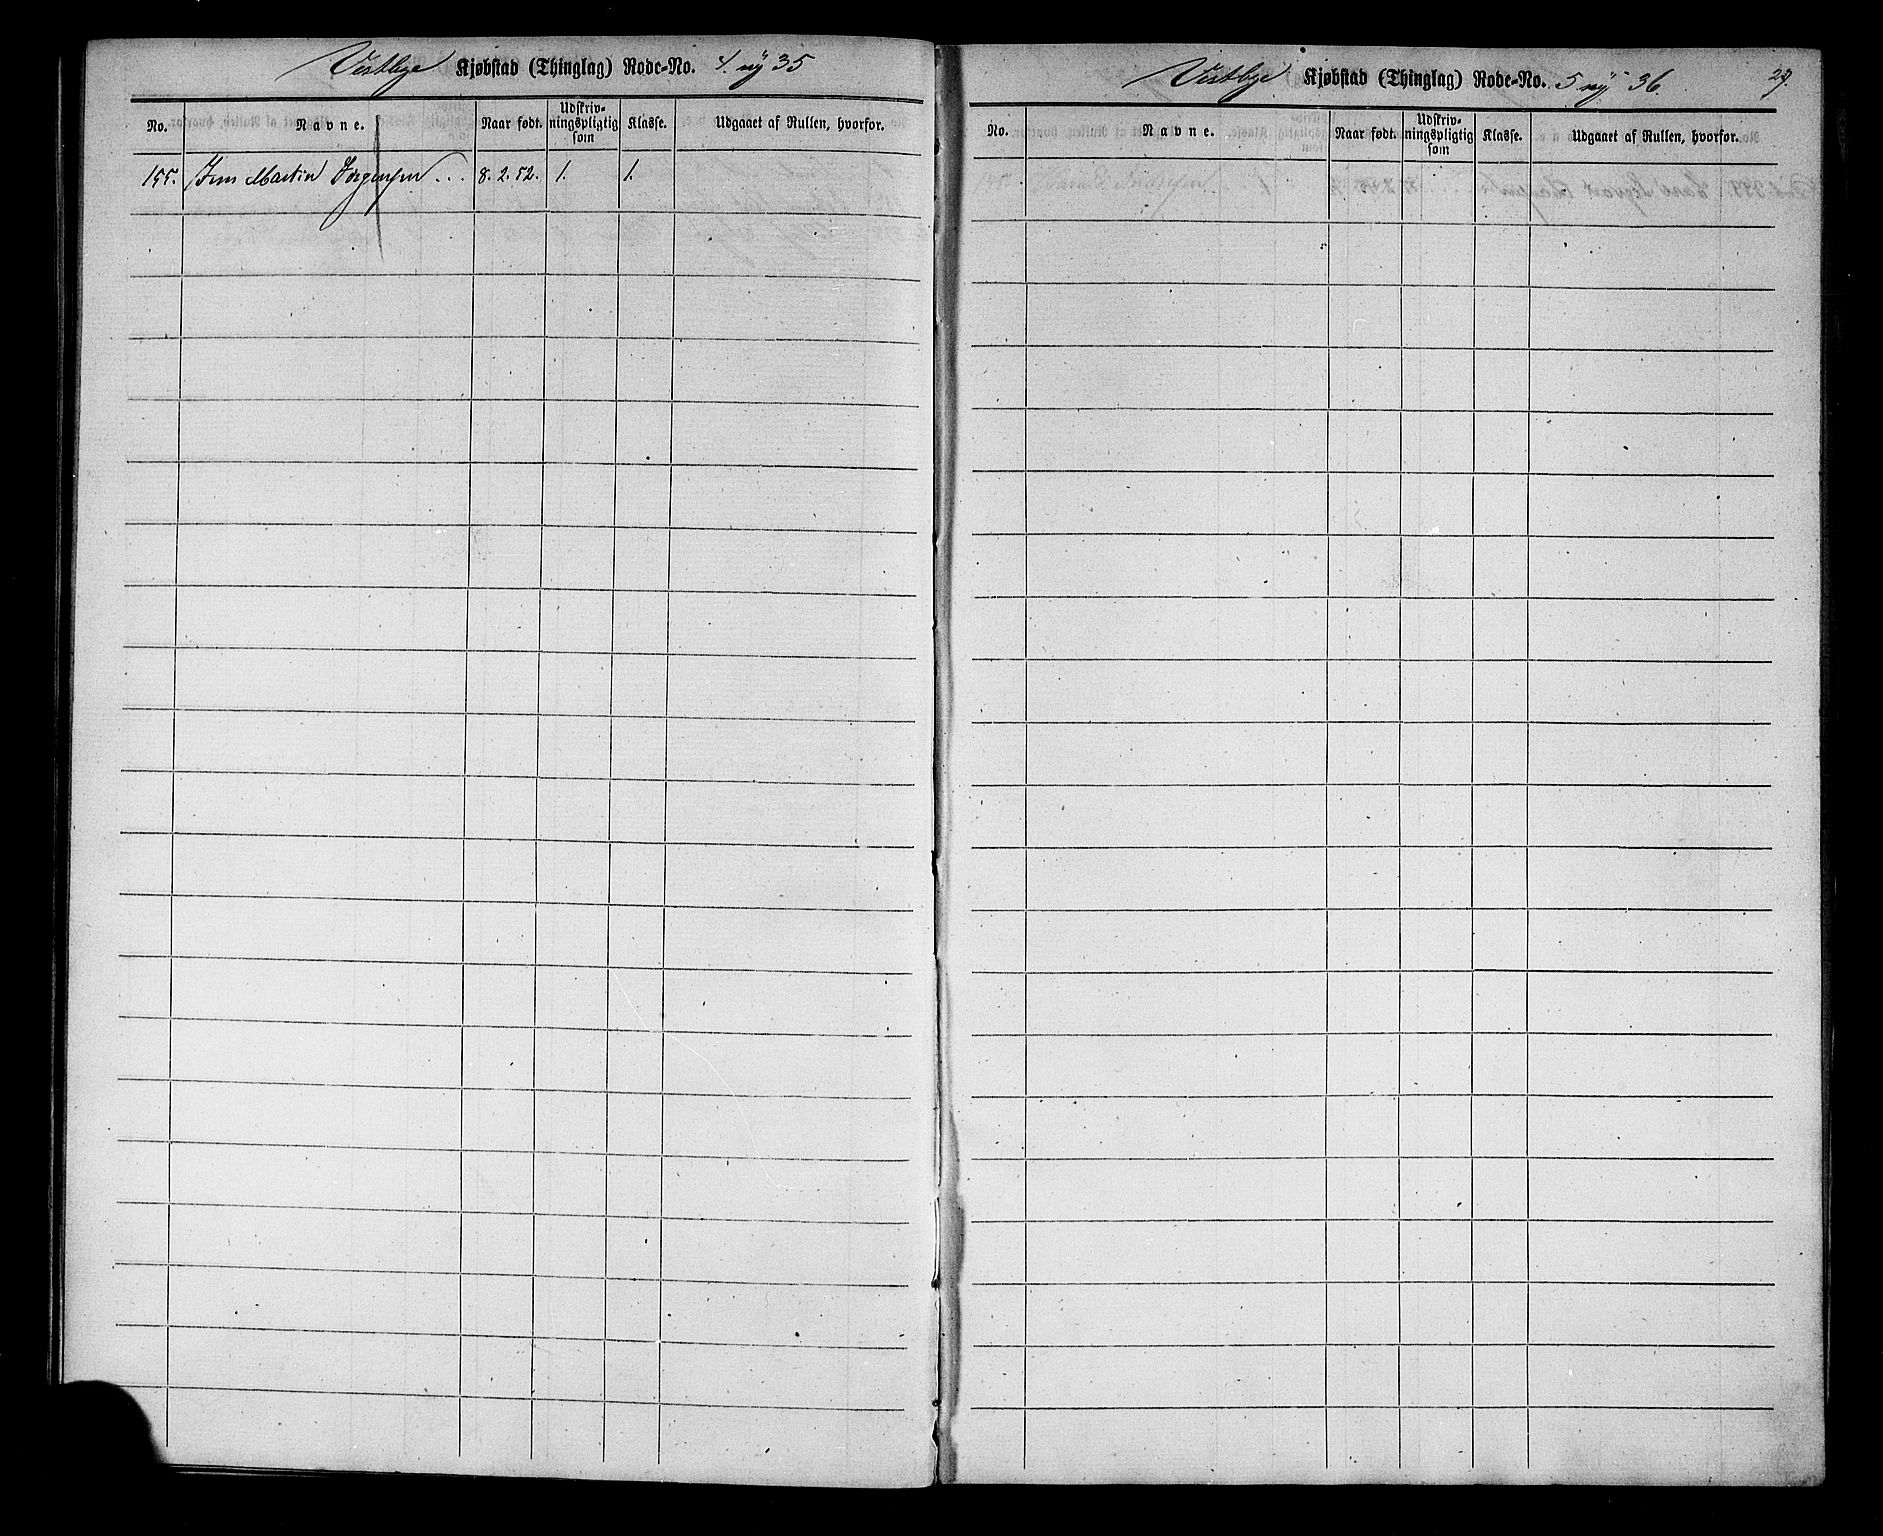 Vestbye Kjøbstad (Thinglag) Rode-No. 4. ny 35
No. Navne. Naar født. Udskriv-ningspligtig som Klasse. Udgaaet af Rullen, hvorfor.
155. Jens Martin Jørgensen . . . 8. 2. 52. 1. 1.
Vestbye Kjøbstad (Thinglag) Rode-No. 5 ny 36. 29.
No. Navne. Naar født. Udskriv-ningspligtig som Klasse. Udgaaet af Rullen, hvorfor.